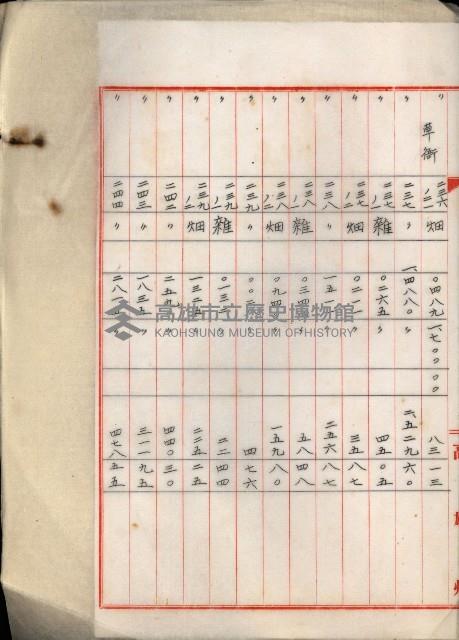 高雄州
〃 草衙 二三六ノ二 畑 〇四八九 一七〇〇〇〇 八三一三
〃 二三七 〃 一、四八八〇 〃 二五、二九六〇
〃 二三七ノ一 雜 〇二六五 〃 四五〇五
〃 二三七ノ二 畑 〇二一一 〃 三五八七
〃 二三八 〃 一五一一 〃 二五六八七
〃 二三八ノ一 雜 〇三四四 〃 五八四八
〃 二三八ノ二 畑 〇九四〇 〃 一五九八〇
〃 二三九 〃 〇〇二八 〃 四七六
〃 二三九ノ一 雜 〇一三二 〃 二二四四
〃 二三九ノ二 畑 一三二五 〃 二二五二五
〃 二四二 〃 二五九〇 〃 四四〇三〇
〃 二四三 〃 一八三五 〃 三一一九五
〃 二四四 〃 二八一五 〃 四七八五五
高雄市立歷史博物館
KAOHSIUNG MUSEUM OF HISTORY